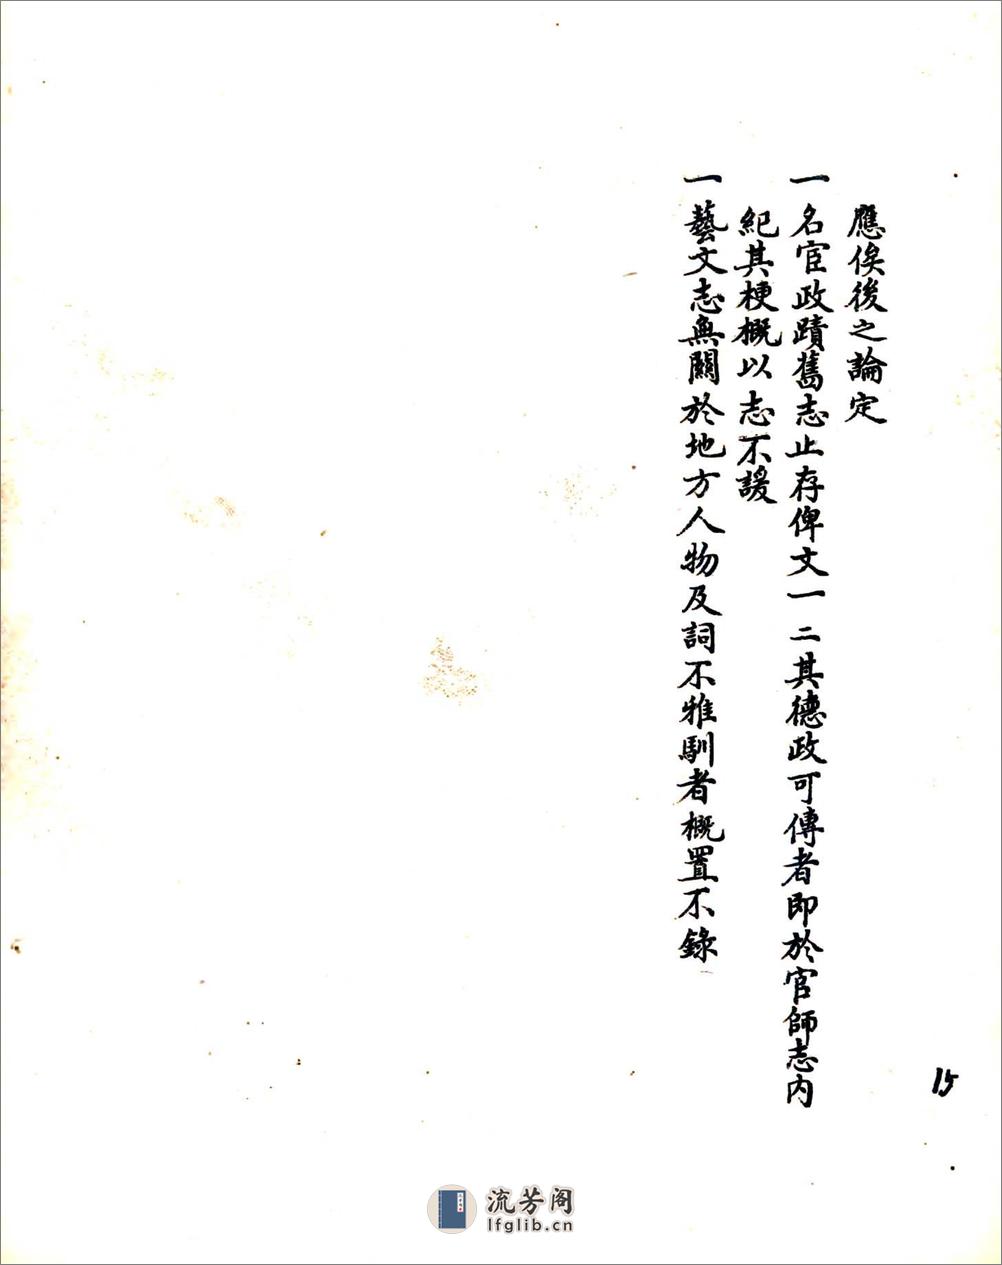 應俟後之論定
一名宦政蹟舊志止存俾文一二其德政可傳者即於官師志内
紀其梗概以志不諼
一藝文志無關於地方人物及詞不雅馴者概置不錄
15
流芳阁
lfglib.cn